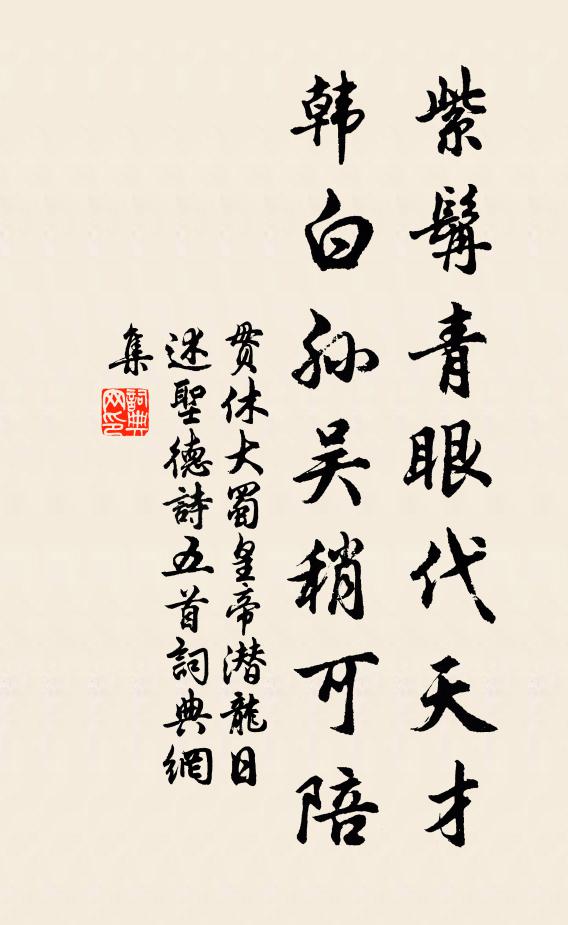 紫髯青眼代天才
韩白孙吴稍可陪
贯休大蜀皇帝潜龍日
述聖德詩五首詞典網
集
詞典网印